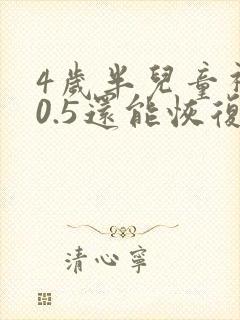 4歲半兒童視
0.5還能恢復
清心寧